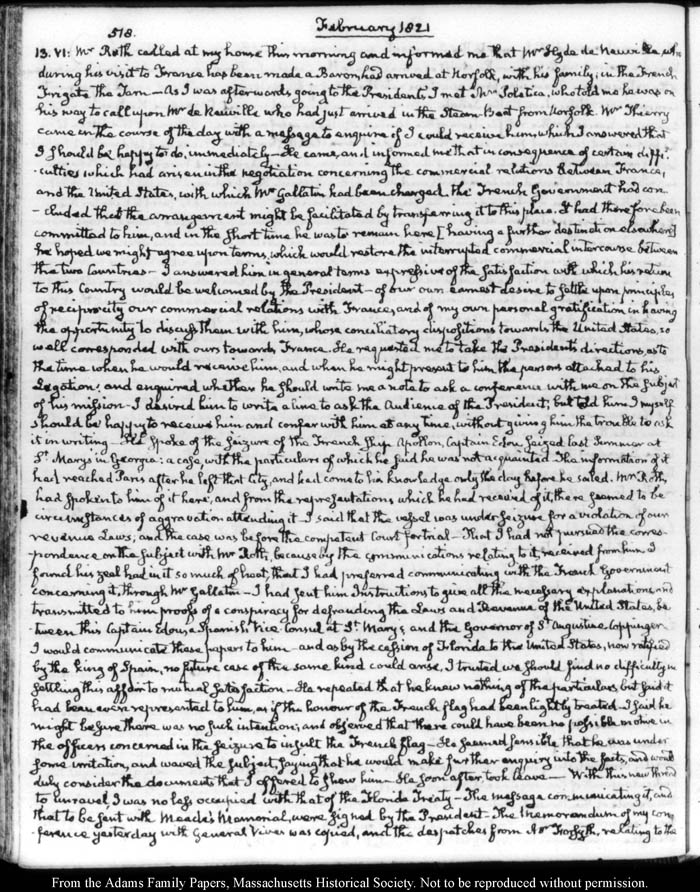 518.
February 1821
13. VI: Mr Roth called at my house this morning and informed me that Mr Hyde de Neuville, who
during his visit to France has been made a Baron, had arrived at Norfolk, with his family, in the French
Frigate the Tarn — As I was afterwards going to the President's I met Mr Poletica, who told me he was on
his way to call upon Mr de Neuville who had just arrived in the Steam Boat from Norfolk. Mr Thierry
came in the course of the day with a message to enquire if I could receive him, which I answered that
I should be happy to do, immediately — He came, and informed me that in consequence of certain diffi-
-culties which had arisen in the negotiation concerning the commercial relations between France,
and the United States, with which Mr Gallatin had been charged, the French Government had con-
-cluded that the arrangement might be facilitated by transferring it to this place. It had therefore been
committed to him, and in the short time he was to remain here [having a further destination elsewhere]
he hoped we might agree upon terms, which would restore the interrupted commercial intercourse between
the two Countries — I answered him in general terms expressive of the satisfaction with which his return
to this Country would be welcomed by the President — of our own earnest desire to settle upon principles
of reciprocity our commercial relations with France, and of my own personal gratification in having
the opportunity to discuss them with him, whose conciliatory dispositions towards the United States, so
well corresponded with ours towards France. He requested me to take the President's directions, as to
the time when he would receive him, and when he might present to him the persons attached to his
Legation; and enquired whether he should write me a note to ask a conference with me on the subject
of his mission — I desired him to write a line to ask the Audience of the President; but told him I myself
should be happy to receive him and confer with him at any time, without giving him the trouble to ask
it in writing — He spoke of the seizure of the French Ship Apollon, Captain Edou, seized last Summer at
St. Mary's in Georgia: a case, with the particulars of which he said he was not acquainted. The information of it
had reached Paris after he left that City, and had come to his knowledge only the day before he sailed. Mr Roth,
had spoken to him of it here, and from the representations which he had received of it, there seemed to be
circumstances of aggravation attending it — I said that the vessel was under seizure for a violation of our
revenue Laws; and the case was before the competent Court for trial — That I had not pursued the corres-
-pondence on the subject with Mr Roth, because by the communications relating to it, received from him I
found his zeal had in it so much of heat, that I had preferred communicating with the French Government
concerning it, through Mr Gallatin — I had sent him Instructions to give all the necessary explanations, and
transmitted to him proofs of a conspiracy for defrauding the Laws and Revenue of the United States, be-
tween this Captain Edou, a Spanish Vice Consul at St Mary's, and the Governor of St Augustine Coppinger
I would communicate these papers to him — and as by the cession of Florida to the United States, now ratified
by the king of Spain, no future case of the same kind could arise, I trusted we should find no difficulty in
settling this affair to mutual satisfaction — He repeated that he knew nothing of the particulars, but said it
had been even represented to him, as if the honour of the French flag had been lightly treated — I said he
might be sure there was no such intention; and observed that there could have been no possible motive in
the officers concerned in the seizure to insult the French flag — He seemed sensible that he was under
some irritation, and waved the subject, saying that he would make further enquiry into the facts, and would
duly consider the documents that I offered to shew him — He soon after took leave — With this new thread
to unravel, I was no less occupied with that of the Florida Treaty — The message communicating it, and
that to be sent with Meade's Memorial, were signed by the President — The Memorandum of my con-
-ference yesterday with General Vives was copied, and the despatches from Mr Forsyth, relating to the
From the Adams Family Papers, Massachusetts Historical Society. Not to be reproduced without permission.